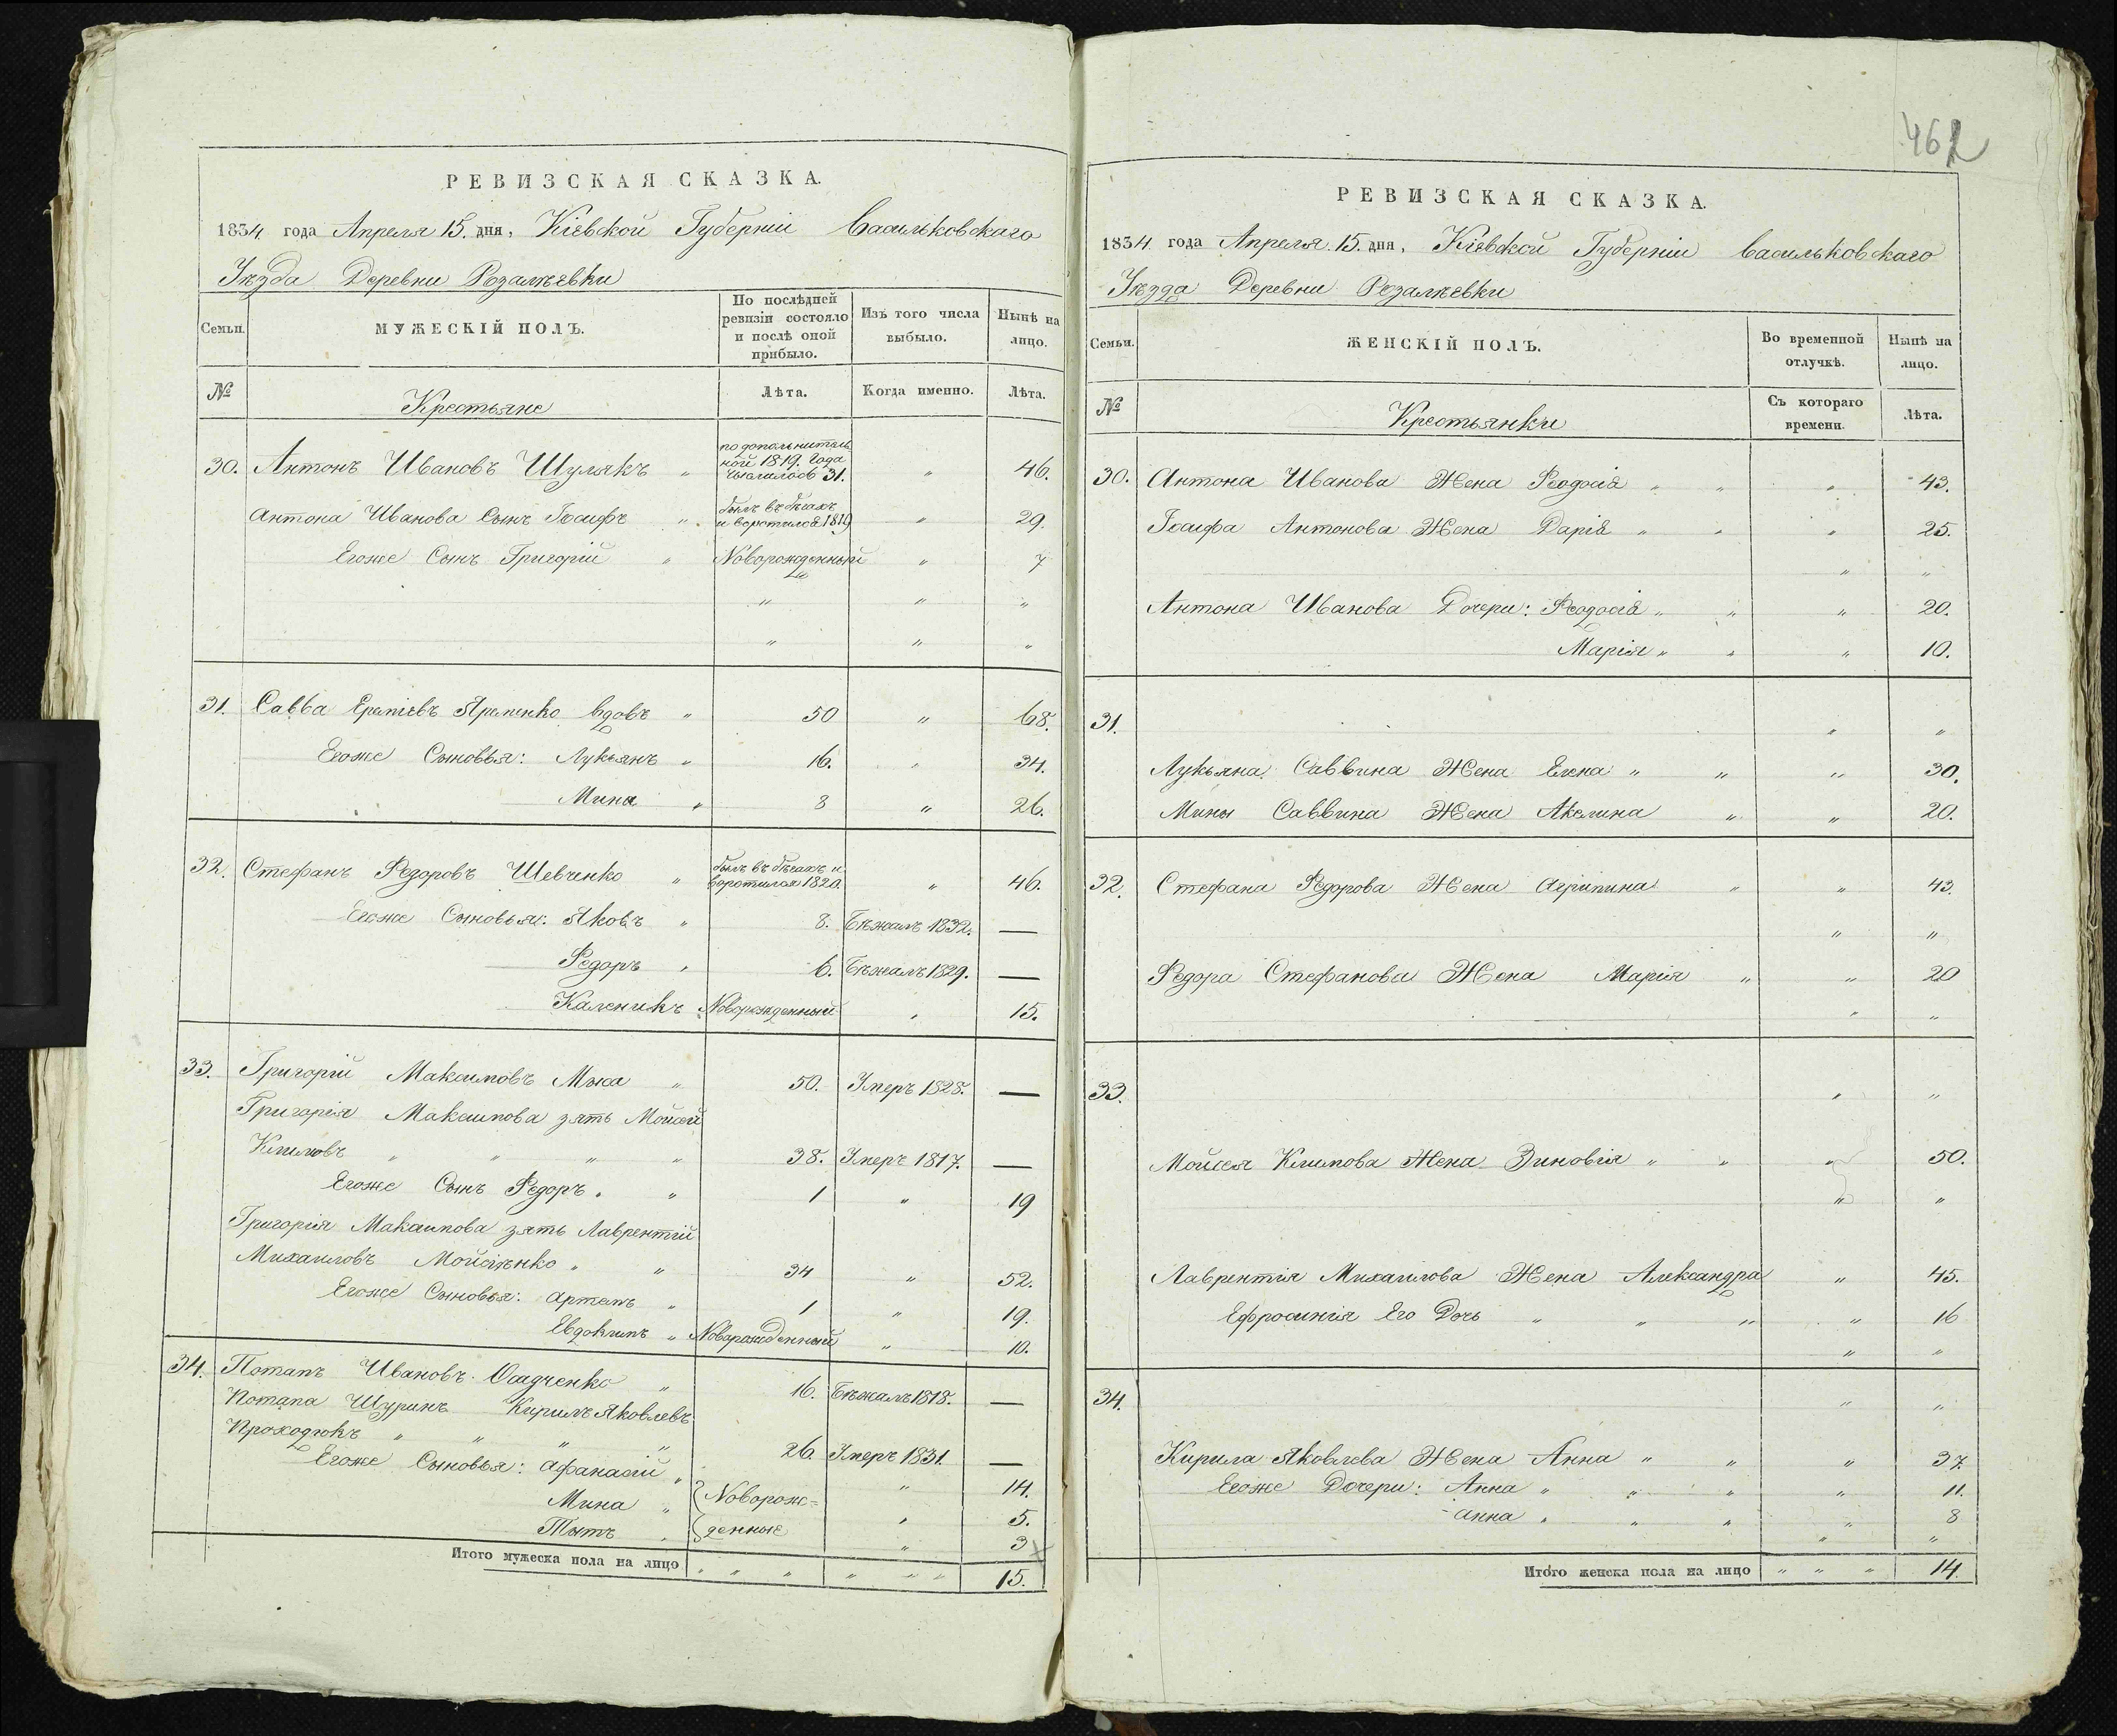 РЕВИЗСКАЯ СКАЗКА.
1834 года Апреля 15. дня, Кіевской Губерніи Васильковскаго
Уѣзда Деревни Розалѣевки
Семьи.
МУЖЕСКІЙ ПОЛЪ.
По послѣдней ревизіи состояло и послѣ оной прибыло.
Изъ того числа выбыло.
Нынѣ на лицо.
№ Крестьяне Лѣта. Когда именно. Лѣта.
30. Антонъ Ивановъ Шулякъ " по дополнитель ной 1819. Года числился 31. " 46.
Антона Иванова Сынъ Іосифъ " былъ въ бѣгахъ и воротился 1819 " 29.
Егоже Сынъ Григорій " Новорожденный " 7
" " "
" " "
31. Савва Вдовъ " 50 " 68.
Егоже Сыновья: Лукьянъ " 16. " 34.
Мина " 8 " 26.
32. Стефанъ Ѳедоровъ Шевченко " былъ въ бѣгахъ и воротился 1820. " 46.
Егоже Сыновья: Яковъ " 8. Бѣжалъ 1832. —
Ѳедоръ " 6. Бѣжалъ 1829. —
Каленикъ " Новорожденный " 15.
33. Григорій Максимовъ " 50. Умеръ 1828. —
Григорія Максимова зять Мойсей
Климовъ " " " " 38. Умеръ 1817. —
Егоже Сынъ Ѳедоръ " " 1 " 19
Григорія Максимова зять Лаврентій
Михаиловъ Мойсѣенко " " 34 " 52.
Егоже Сыновья: Артемъ " 1 " 19.
Евдокимъ " Новорожденный " 10.
34. Потапъ Ивановъ Осадченко " 16. Бѣжалъ 1818. —
Потапа Шуринъ Кирилъ Яковлевъ
Проходюкъ " " " " 26. Умеръ 1831. —
Егоже Сыновья: Афанасій " " 14.
Мина " Новорож= " 5.
Тытъ " денные " 3
Итого мужеска пола на лицо " " " " " " 15.
462
РЕВИЗСКАЯ СКАЗКА.
1834 года Апреля 15. дня, Кіевской Губерніи Васильковскаго
Уѣзда Деревни Розалѣевки
Семьи.
ЖЕНСКІЙ ПОЛЪ.
Во временной отлучкѣ.
Нынѣ на лицо.
№ Крестьянки Съ котораго времени. Лѣта.
30. Антона Иванова Жена Ѳеодосія " " " 43.
Іосифа Антонова Жена Дарія " " " 25.
" "
Антона Иванова Дочери: Ѳеодосія " " " 20.
Марія " " " 10.
31. " "
Лукьяна Саввина Жена Елена " " " 30.
Мины Саввина Жена Акелина " " 20.
32. Стефана Ѳедорова Жена Агрипина " " 43.
" "
Ѳедора Стефанова Жена Марія " " 20
" "
33. " "
Мойсея Климова Жена Зиновія " " " 50.
" "
Лаврентія Михаилова Жена Александра " 45.
Ефросинія Его Дочь " " " " 16
" "
34. " "
Кирила Яковлева Жена Анна " " " 37.
Егоже Дочери: Анна " " " " 11.
Анна " " " " 8
" "
Итого женска пола на лицо " " " 14.